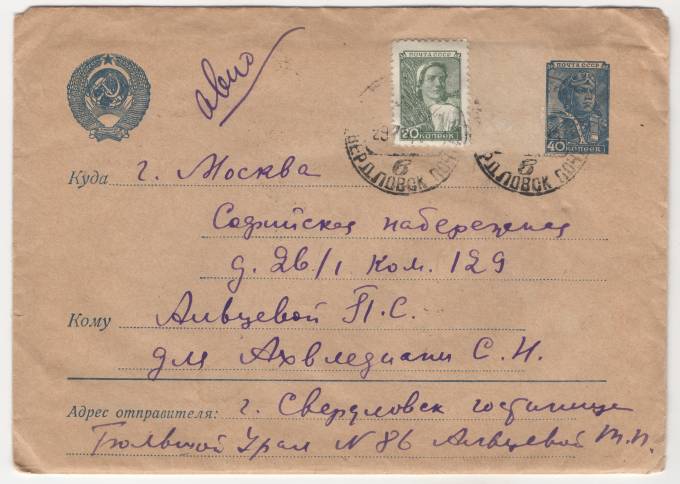 авио
ПОЧТА СССР
20 КОПЕЕК
ПОЧТА СССР
40 КОПЕЕК
СВЕРДЛОВСК ПОЧ
6
СВЕРДЛОВСК ПОЧ
6
Куда г. Москва
Софийская набережная
д. 26/1 ком. 129
Кому Алвцевой П.С.
для Ахвледиани С.И.
Адрес отправителя: г. Свердловск гостиница
Большой Урал N 86 Алвцевой Т.П.